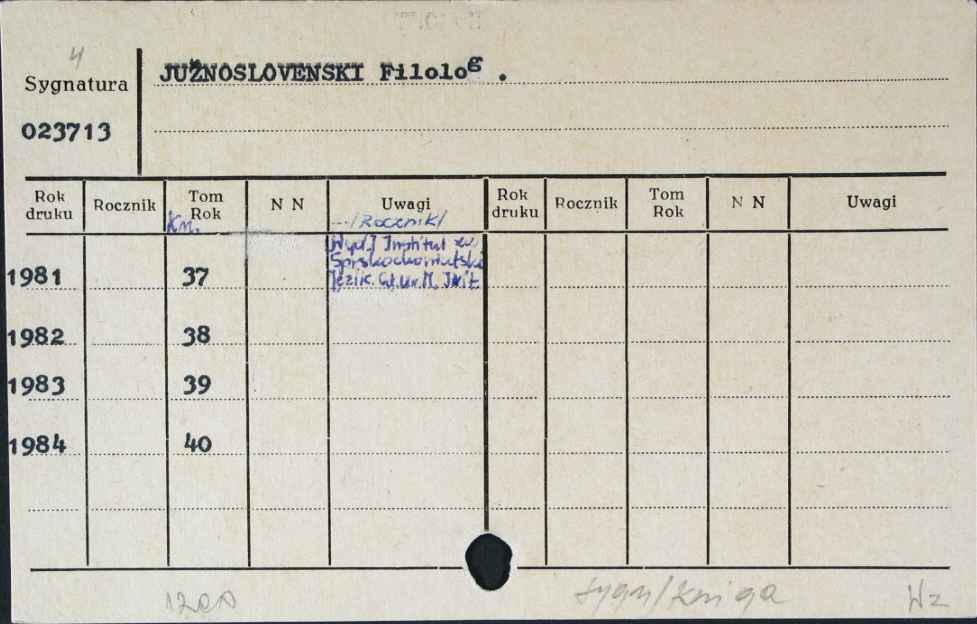 4
Sygnatura
023713
JUŽNOSLOVENSKI Filolog .
Rok druku Rocznik Tom Rok N N Uwagi Rok druku Rocznik Tom Rok N N Uwagi
Kn. /Rocznik/
[Wyd.] Institut za
1981 37
1982 38
1983 39
1984 40
1200 Wz